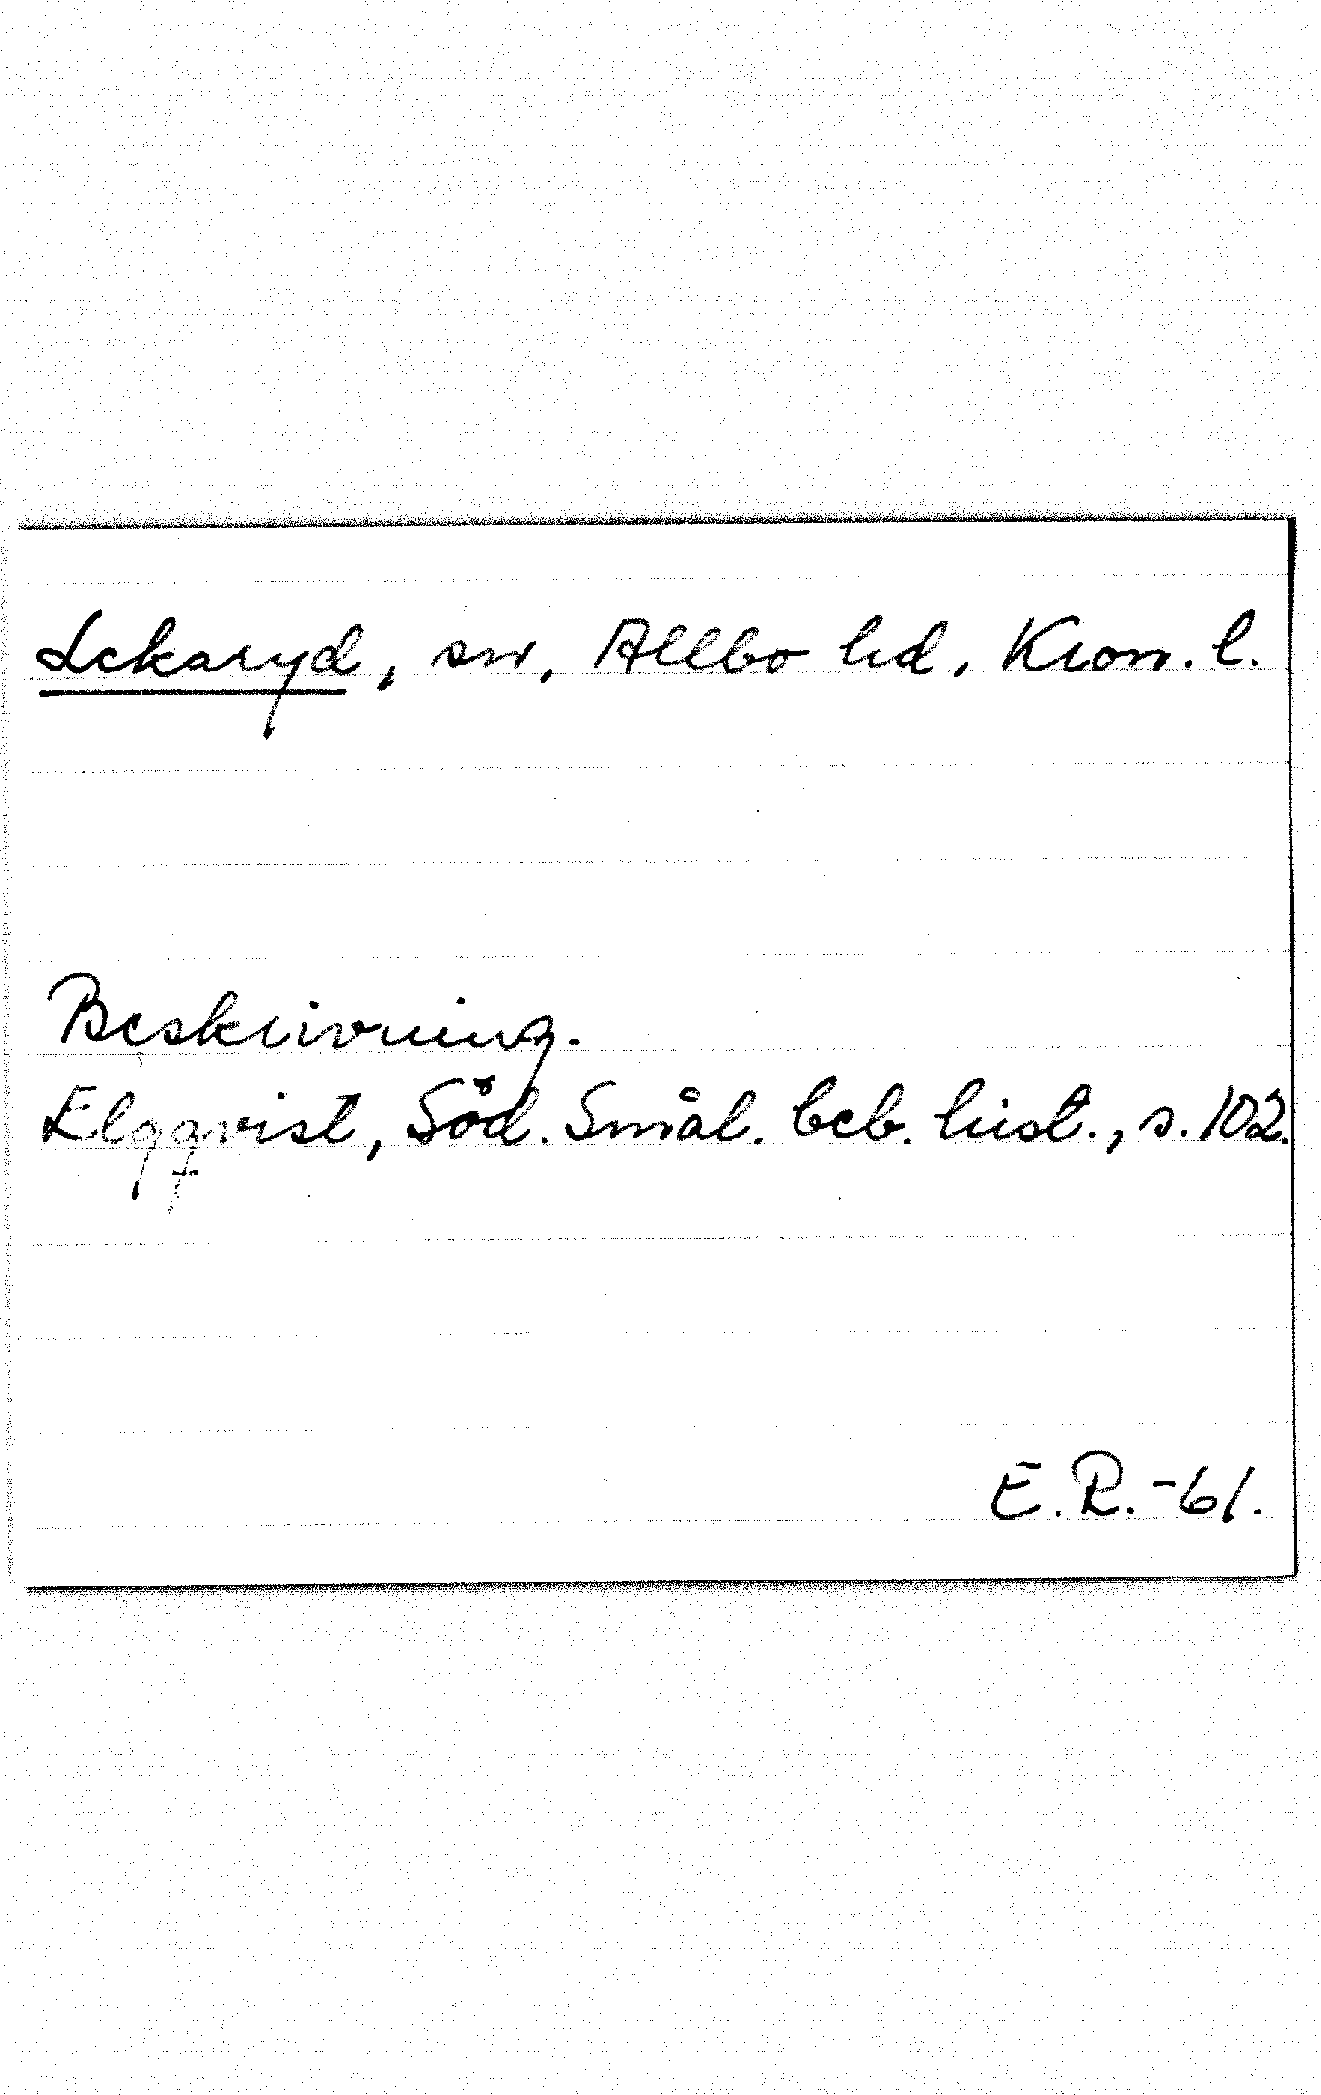 Lekaryd, sn, Allbo hd, Kron. l.
Beskrivning.
Elgqvist, Söd. Smål. beb. hist., s. 102.
E.R.-61.